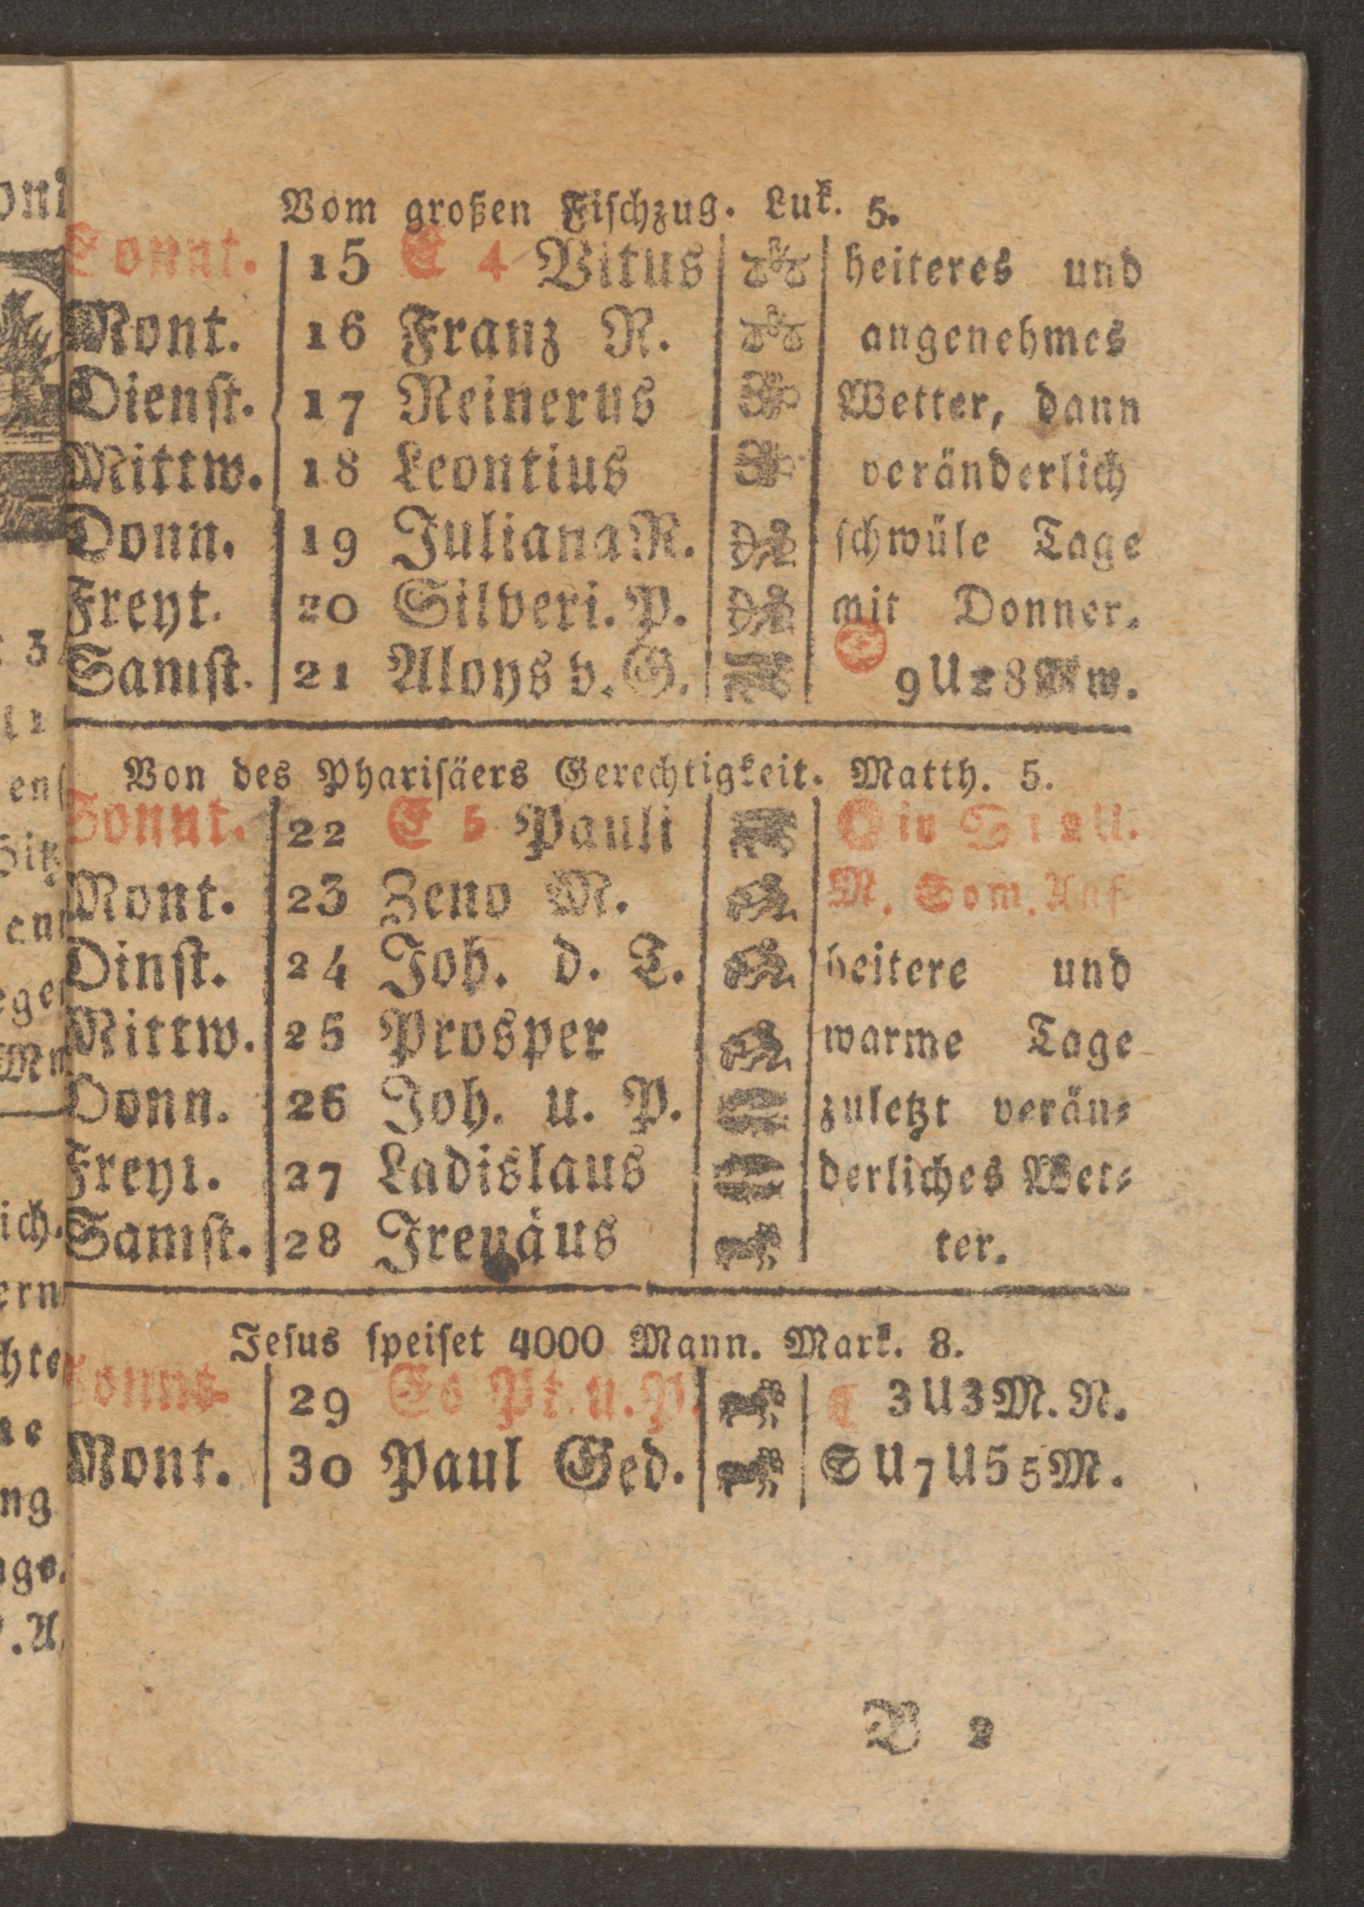 Vom großen Fischzug. Luk. 5.
Sonnt. 15 E 4 Vitus heiteres und
Mont. 16 Franz R. angenehmes
Dienst. 17 Reinerus Wetter, dann
Mittw. 18 Leontius veränderlich
Donn. 19 Juliana R. schwüle Tage
Freyt. 20 Silveri. P. mit Donner.
Samst. 21 Aloys v. G. 9 U 28 w.
Von des Pharisäers Gerechtigkeit. Matth. 5.
Sonnt. 22 E 5 Pauli in 11 U.
Mont. 23 Zeno M. M. Som. Anf
Dinst. 24 Joh. d. T. heitere und
Mittw. 25 Prosper warme Tage
Donn. 26 Joh. u. P. zuletzt verän⸗
Freyt. 27 Ladislaus derliches Wet⸗
Samst. 28 Irenäus ter.
Jesus speiset 4000 Mann. Mark. 8.
Sonnt. 29 E6 Pt. u. P. ☾ 3 U 3 M. N.
Mont. 30 Paul Ged. S U 7 U 55 M.
B 2